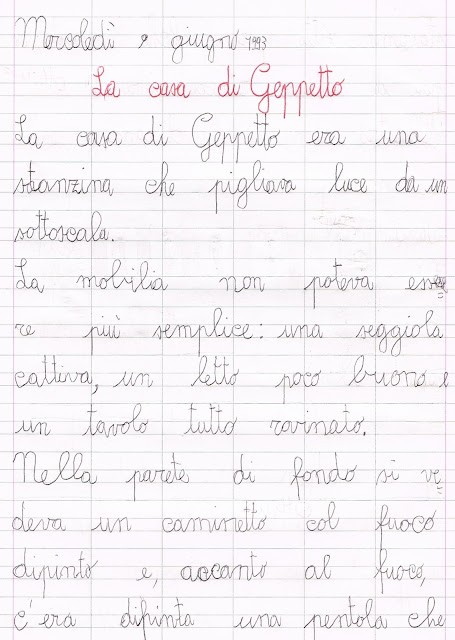 Mercoledì 9 giugno 1993
La casa di Geppetto
La casa di Geppetto era una
stanzina che pigliava luce da un
sottoscala.
La mobilia non poteva esse
re più semplice: una seggiola
cattiva, un letto poco buono e
un tavolo tutto rovinato.
Nella parete di fondo si ve
deva un caminetto col fuoco
dipinto e, accanto al fuoco,
c'era dipinta una pentola che